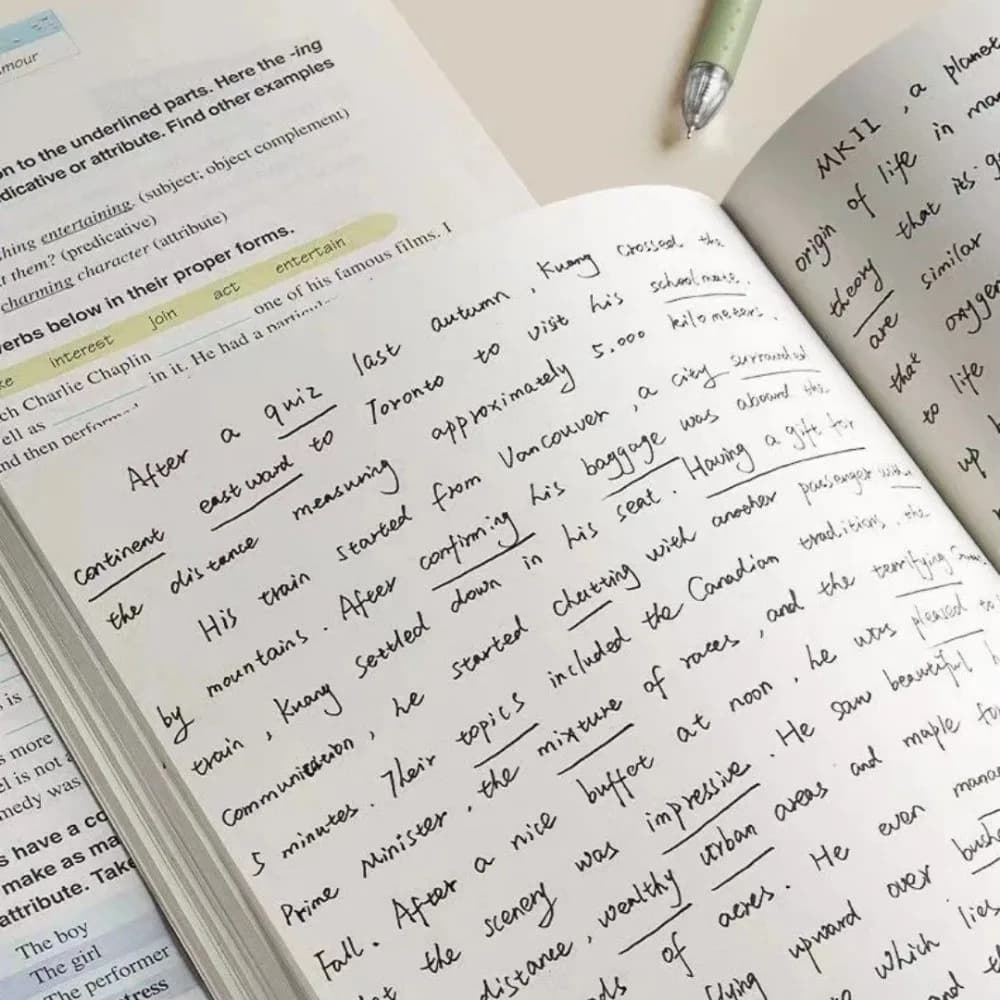 mour
on to the underlined parts. Here the -ing
dicative or attribute. Find other examples
hing entertaining. (subject; object complement)
t them? (predicative)
charming character (attribute)
verbs below in their proper forms.
ke interest join act entertain
ch Charlie Chaplin one of his famous films. I
ell as in it. He had a
nd then
s is
s more
el is not a
medy was
s have a co
make as ma
attribute. Take
The boy
The girl
The performer
tress
After a quiz last autumn, Kuang crossed the
continent eastward to Toronto to visit his schoolmate,
the distance measuring approximately 5,000 kilometers.
His train started from Vancouver, a city surrounded
by mountains. After confirming his baggage was aboard the
train, Kuang settled down in his seat. Having a gift for
communication, he started chatting with another passenger within
5 minutes. Their topics included the Canadian traditions, the
Prime Minister, the mixture of races, and the terrifying
Fall. After a nice buffet at noon, he was pleased to
the scenery was impressive. He saw beautiful
distance, wealthy urban areas and maple
of acres. He even mana
upward over bush
to which lies
and
MKII, a planet
origin of life in
theory that its
are similar
that oxygen
to life
up